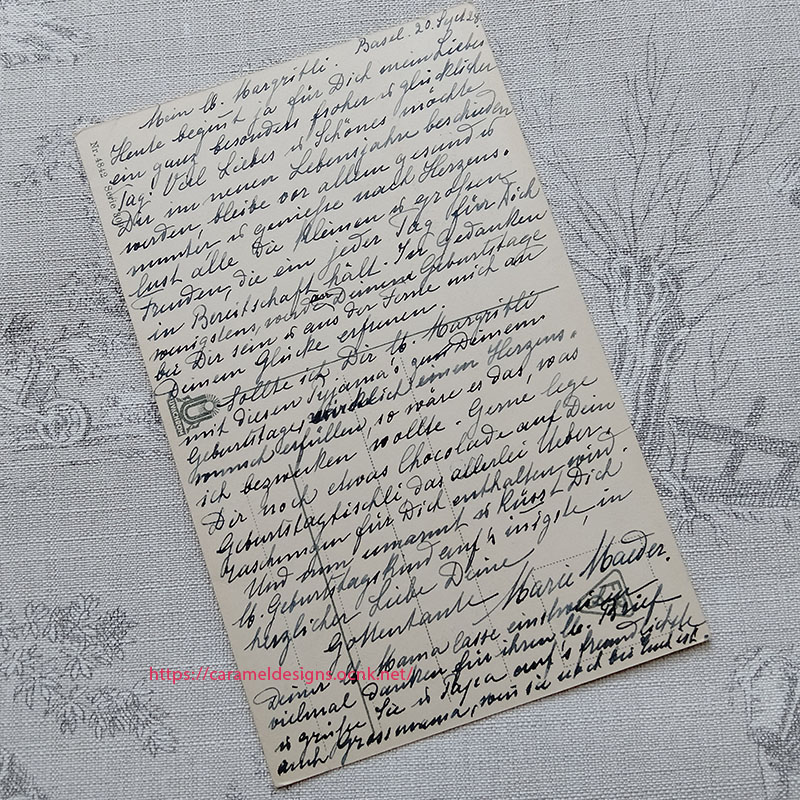 Basel. 20. Sept. 28.
Mein lb. Margritli.
Heute beginnt ja für Dich mein Liebes
ein ganz besonders froher u glücklicher
Tag! Viel Liebes u Schönes möchte
Dir im neuen Lebensjahre beschieden
werden, bleibe vor allem gesund u
munter u geniesse nach Herzens.
lust alle die kleinen u grossen
Freuden, die ein jeder Tag für Dich
in Bereitschaft hält. In Gedanken
wenigstens, werd an Deinem Geburtstage
bei Dir sein u aus der Ferne mich an
Deinem Glücke erfreuen.
Sollte ich Dir lb. Margritli
mit diesem Pyjama zum Deinem
Geburtstage, einen Herzens.
wunsch erfüllen, so wäre es das, was
ich bezwecken wollte. Gerne lege
Dir noch etwas Chocolade auf Dein
Geburtstagtischli das allerlei Ueber.
raschungen für Dich enthalten wird.
Und nun umarmt u küsst Dich
lb. Geburtstagskind auf's innigste, in
herzlicher Liebe Deine
Gottentante Marie Maeder.
Deiner lb. Mama lasse einstweilen
vielmal danken für ihren lb. Brief
u grüsse Sie u Papa auf's freundlichste
auch Grossmama, wenn sie noch bei Euch ist.
Nr. 4842
https://carameldesigns.ocnk.net/